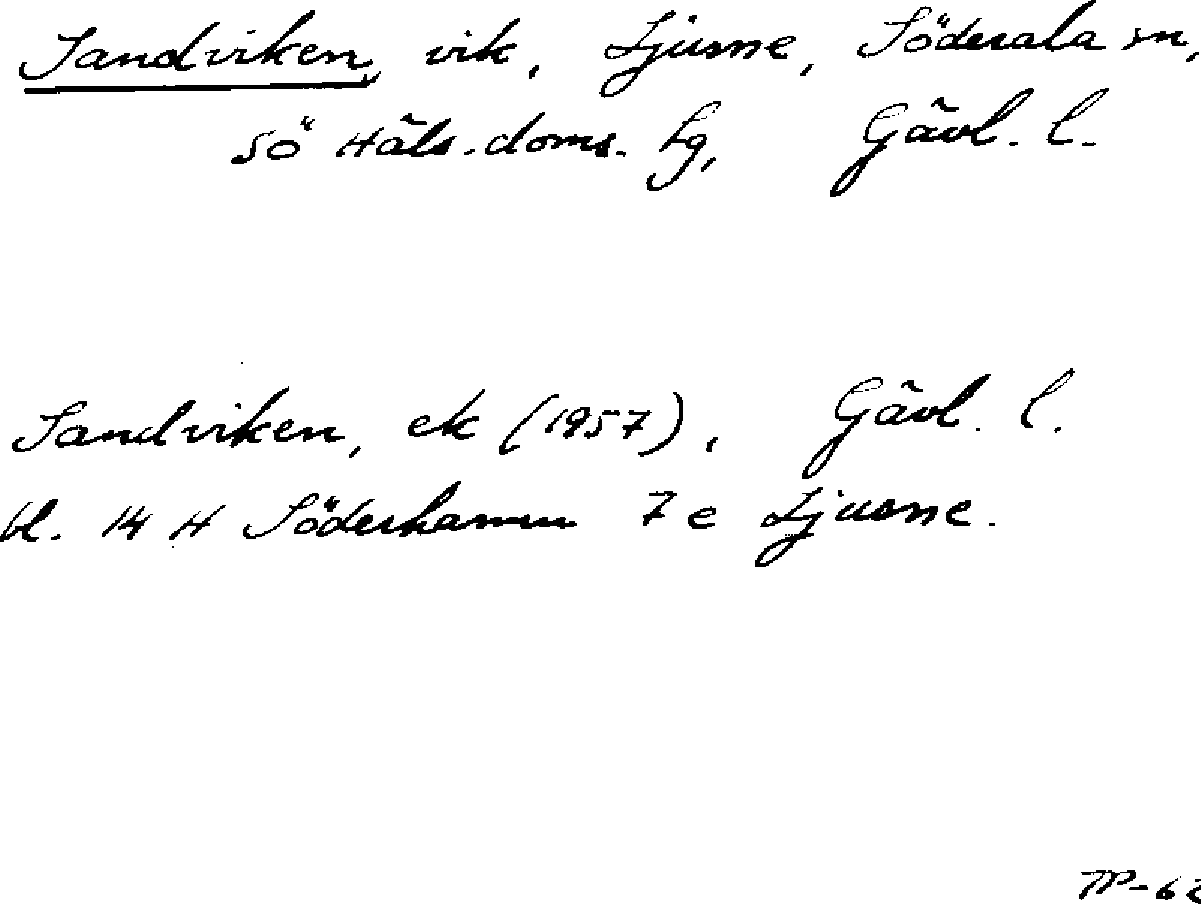 Sandviken, vik, Ljusne, Söderala sn,
Sö Häls. doms. lg, Gävl. l.
Sandviken, ek (1957), Gävl. l.
bl. 14 H Söderhamn 7 e Ljusne.